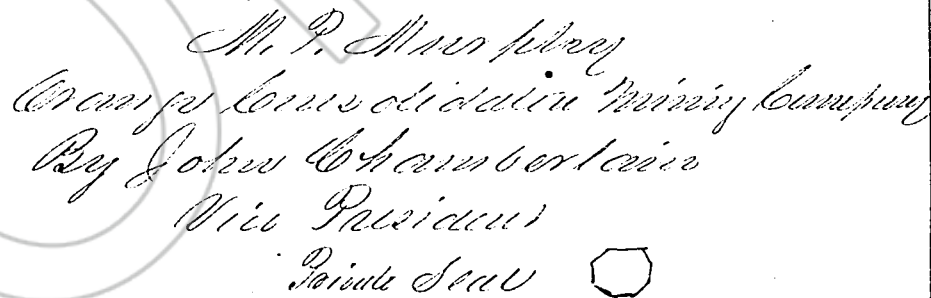 M. P. Murphy
Orange Consolidation Mining Company
By John Chamberlain
Vice President
Private Seal